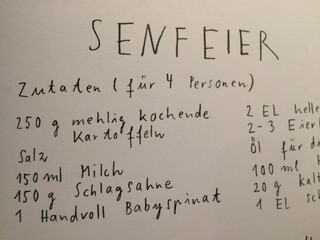 SENFEIER
Zutaten (für 4 Personen)
250 g mehlig kochende
Kartoffeln
Salz
150 ml Milch
150 g Schlagsahne
1 Handvoll Babyspinat
2 EL helle
2-3 Eier
Öl für di
100 ml
20 g kalt
1 EL sc